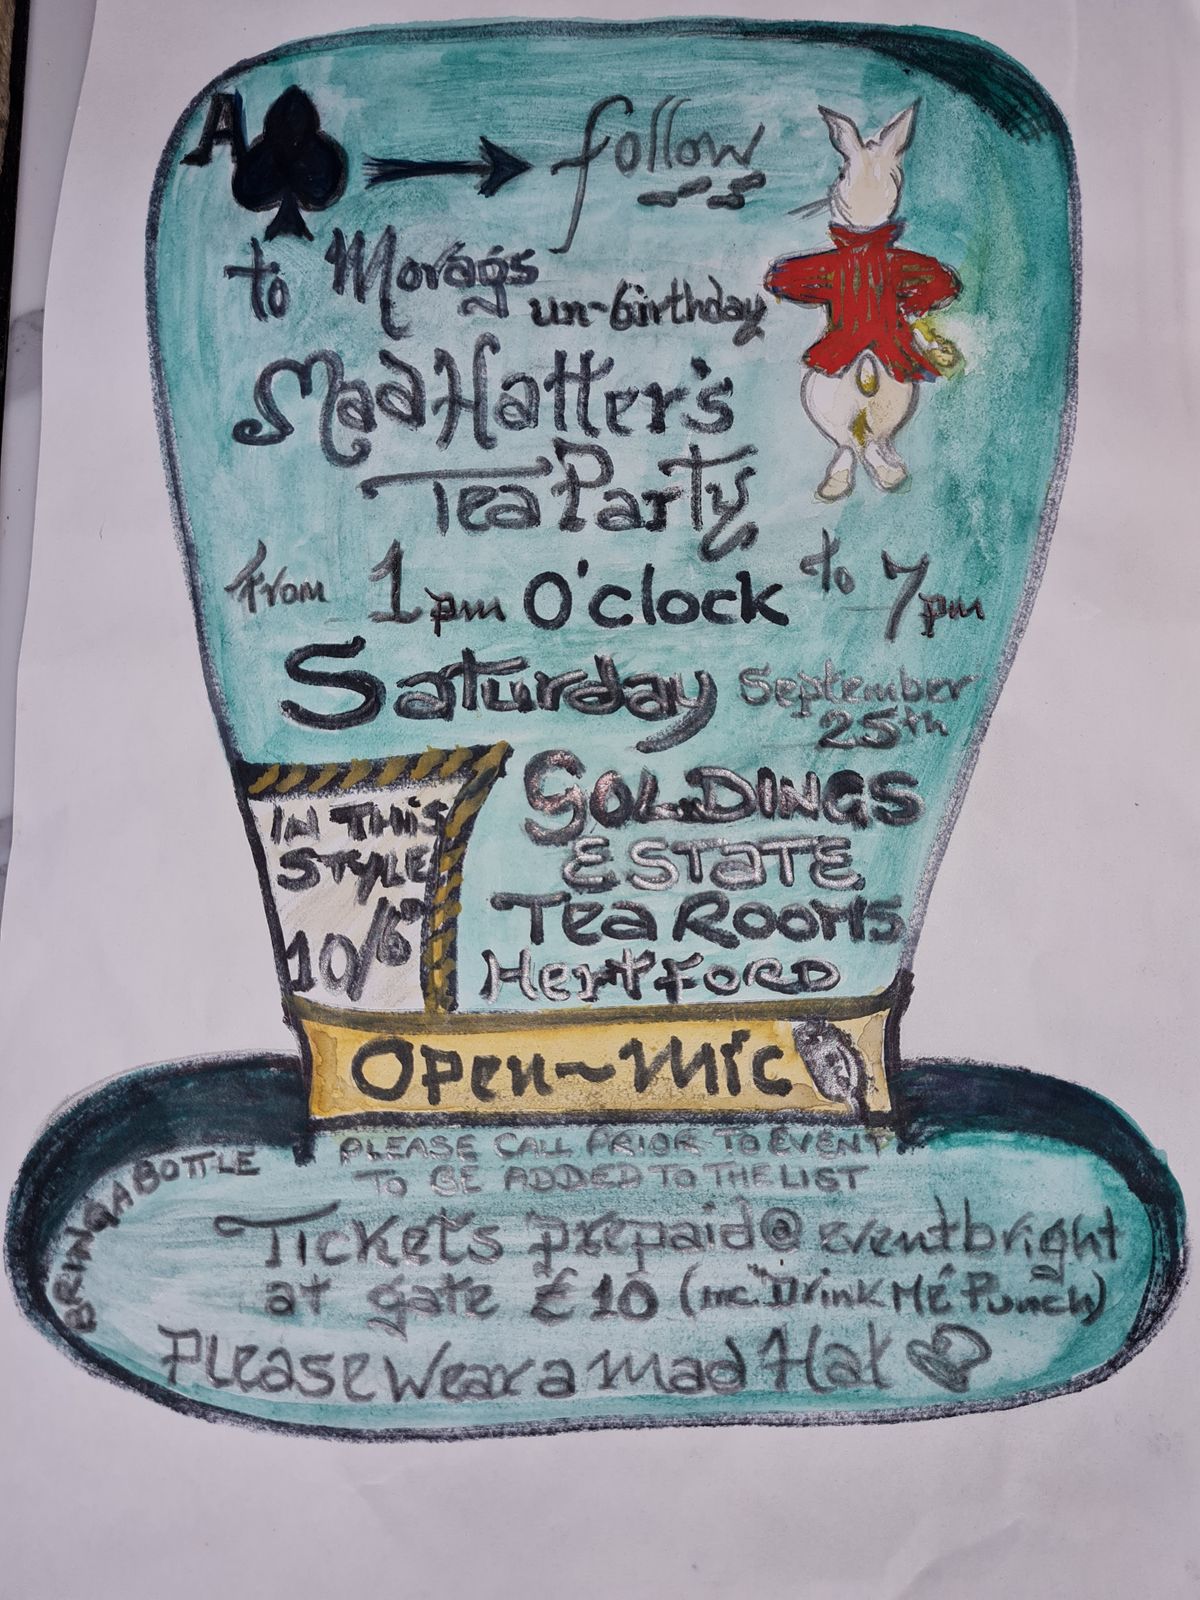 A
follow
to Morags
un-birthday
Mad Hatter's
Tea Party
from 1pm O'clock to 7pm
Saturday September
25th
IN THIS
STYLE
10/6
GOLDINGS
ESTATE
Tea Rooms
Hertford
Open~Mic
PLEASE CALL PRIOR TO EVENT
TO BE ADDED TO THE LIST
BRING A BOTTLE
Tickets prepaid @ eventbright
at gate £10 (inc. "Drink Me" Punch)
Please Wear a Mad Hat